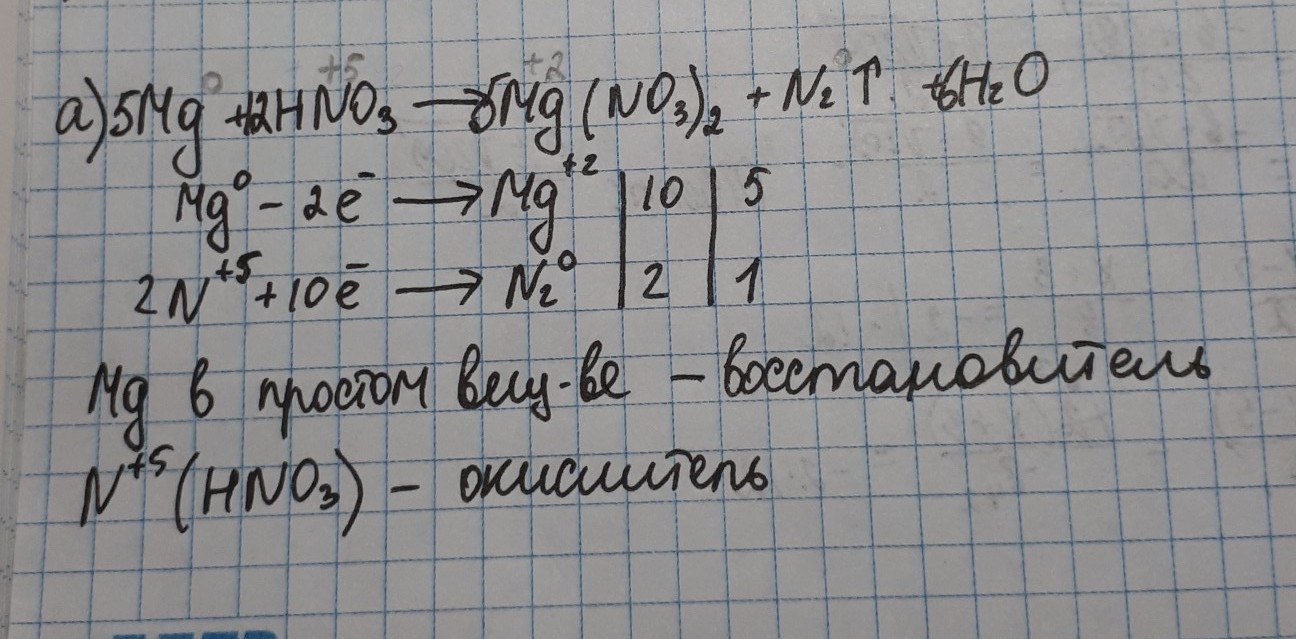 а) 5Mg⁰ + 12HN⁺⁵O₃ → 5Mg⁺²(NO₃)₂ + N₂⁰↑ + 6H₂O
Mg⁰ - 2e⁻ → Mg⁺² | 10 | 5
2N⁺⁵ + 10e⁻ → N₂⁰ | 2 | 1
Mg в простом вещ-ве - восстановитель
N⁺⁵ (HNO₃) - окислитель